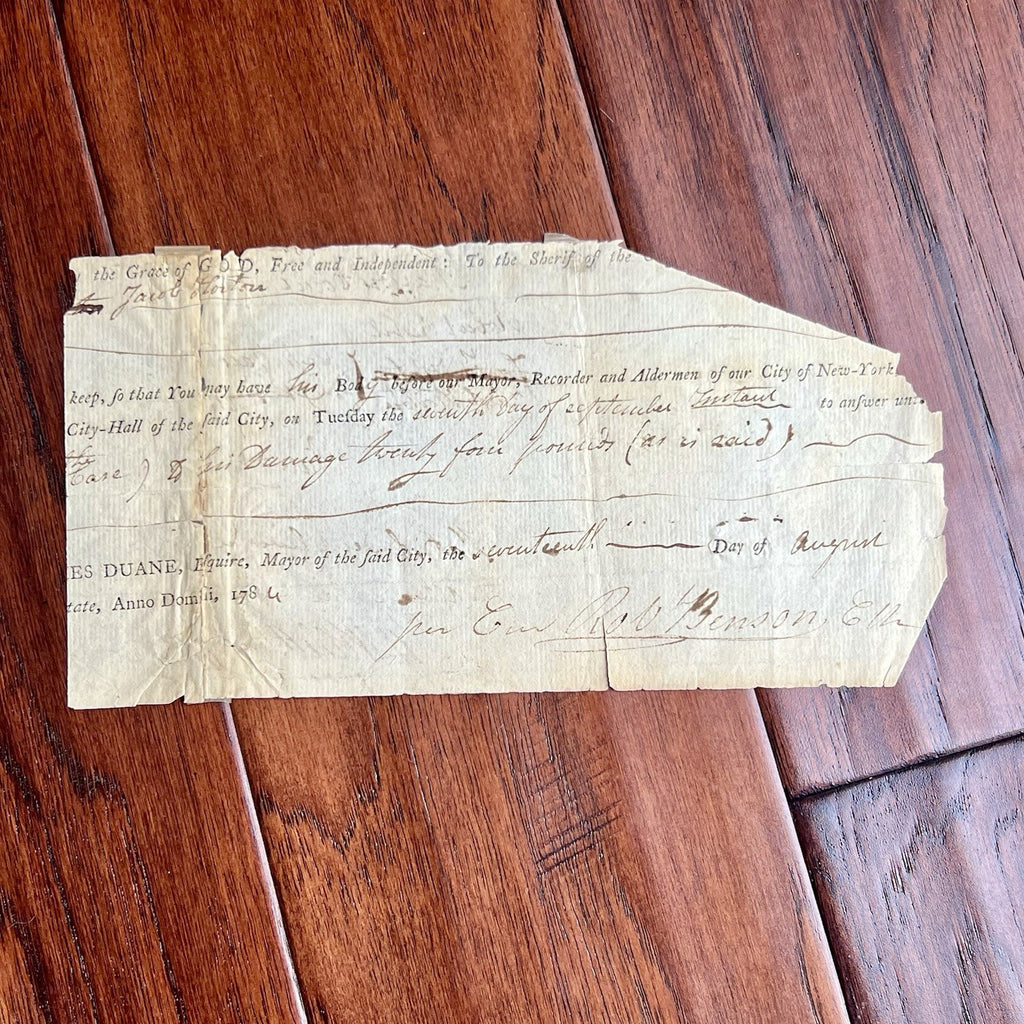 the Grace of GOD, Free and Independent: To the Sherif of the
Jacob
keep, so that You may have his Body before our Mayor, Recorder and Aldermen of our City of New-York
City-Hall of the said City, on Tuesday the seventh Day of september Instant to answer un
Case) to his Damage twenty four pounds (as is said)
ES DUANE, Esquire, Mayor of the said City, the seventeenth Day of August
tate, Anno Domini, 178
per Cur Robt Benson, Clk